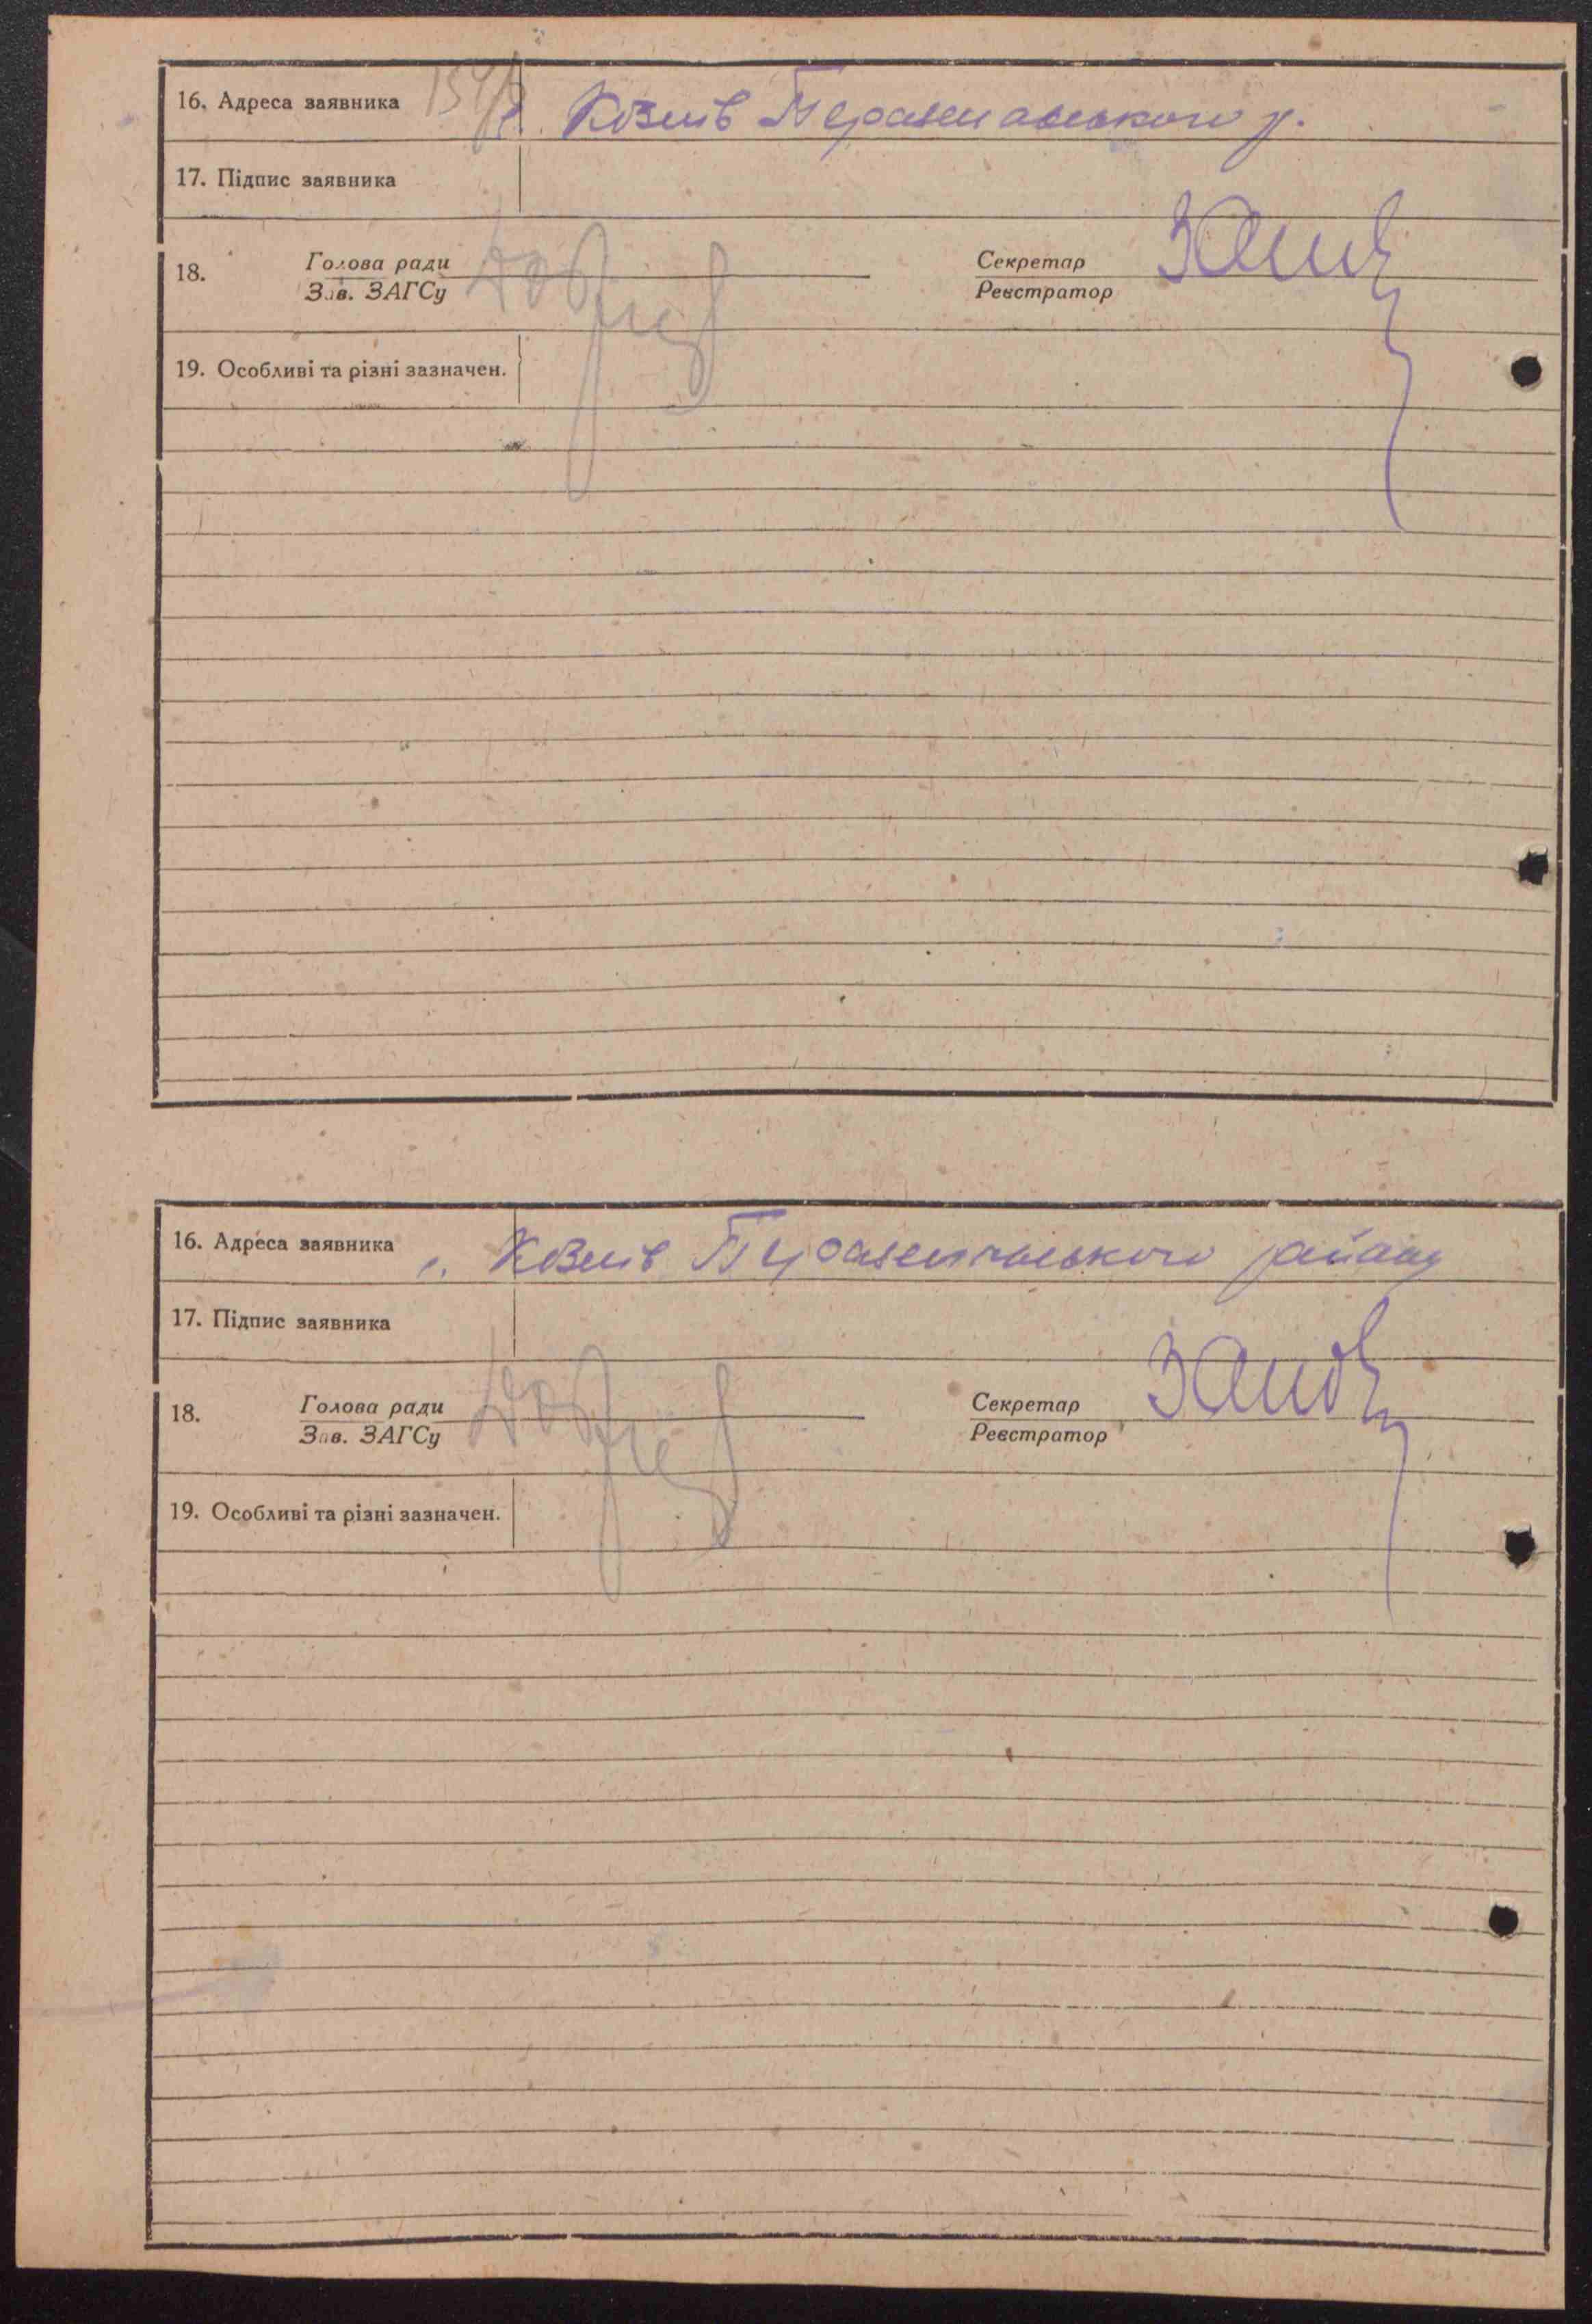 16. Адреса заявника с. Козлів Переяславського р.
17. Підпис заявника
18. Голова ради Секретар
Зав. ЗАГСу Реєстратор
19. Особливі та різні зазначен.
16. Адреса заявника с. Козлів Переяславського району
17. Підпис заявника
18. Голова ради Секретар
Зав. ЗАГСу Реєстратор
19. Особливі та різні зазначен.